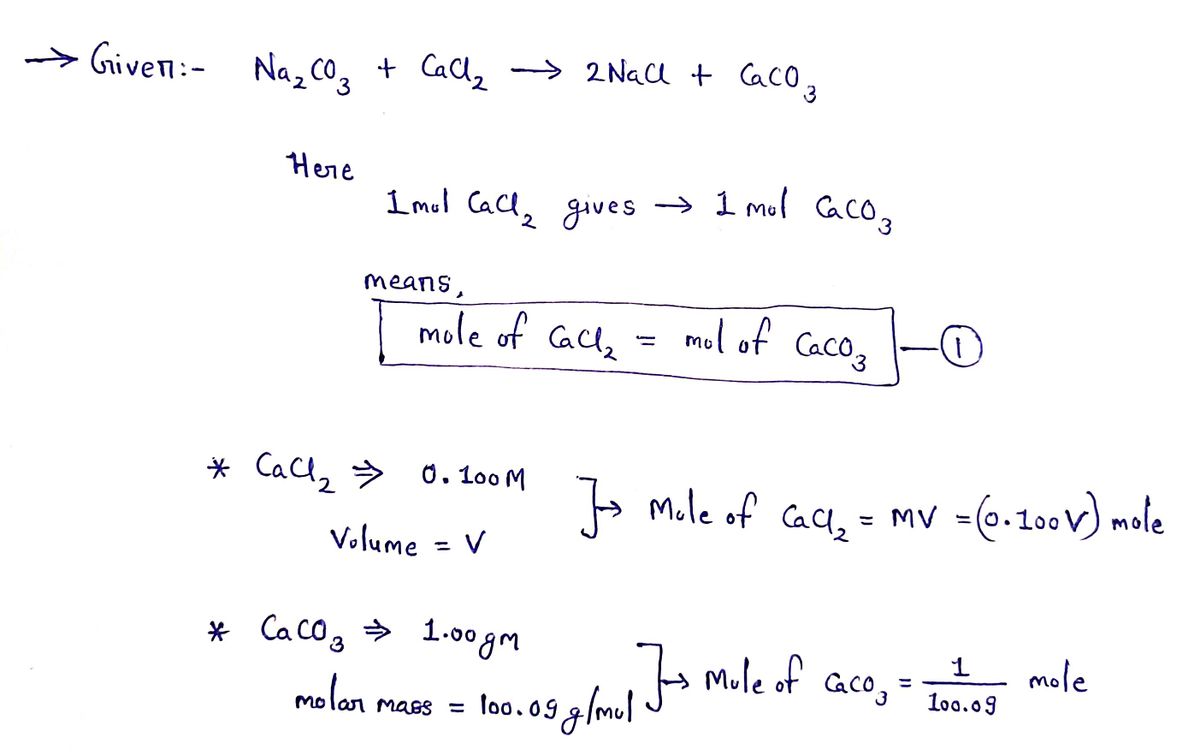 → Given:- Na₂CO₃ + CaCl₂ → 2NaCl + CaCO₃
Here
1 mol CaCl₂ gives → 1 mol CaCO₃
means,
mole of CaCl₂ = mol of CaCO₃ —①
* CaCl₂ ⇒ 0.100M
Volume = V
Mole of CaCl₂ = MV = (0.100V) mole
* CaCO₃ ⇒ 1.00gm
molar mass = 100.09 g/mol
Mole of CaCO₃ = 1/100.09 mole